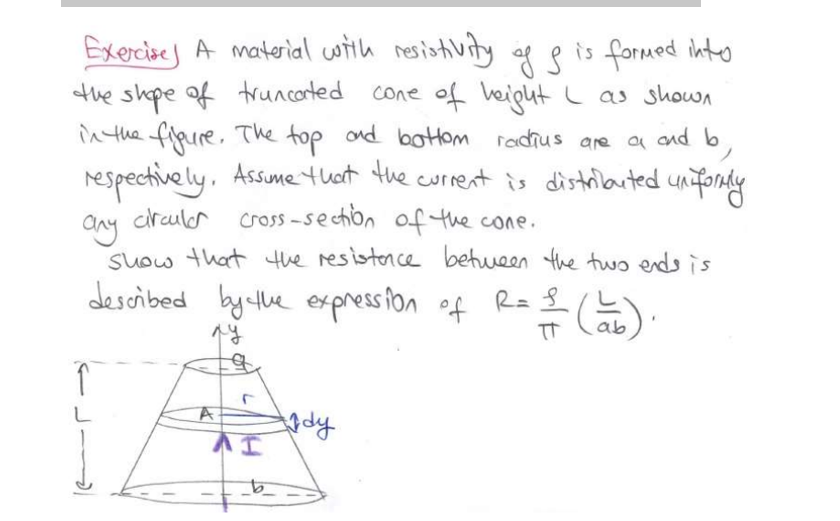 Exercise) A material with resistivity of ρ is formed into
the shape of truncated cone of height L as shown
in the figure. The top and bottom radius are a and b,
respectively. Assume that the current is distributed uniformly
any circular cross-section of the cone.
show that the resistence between the two ends is
described by the expression of R = ρ/π (L/ab).
y
a
r
A
L
dy
I
b